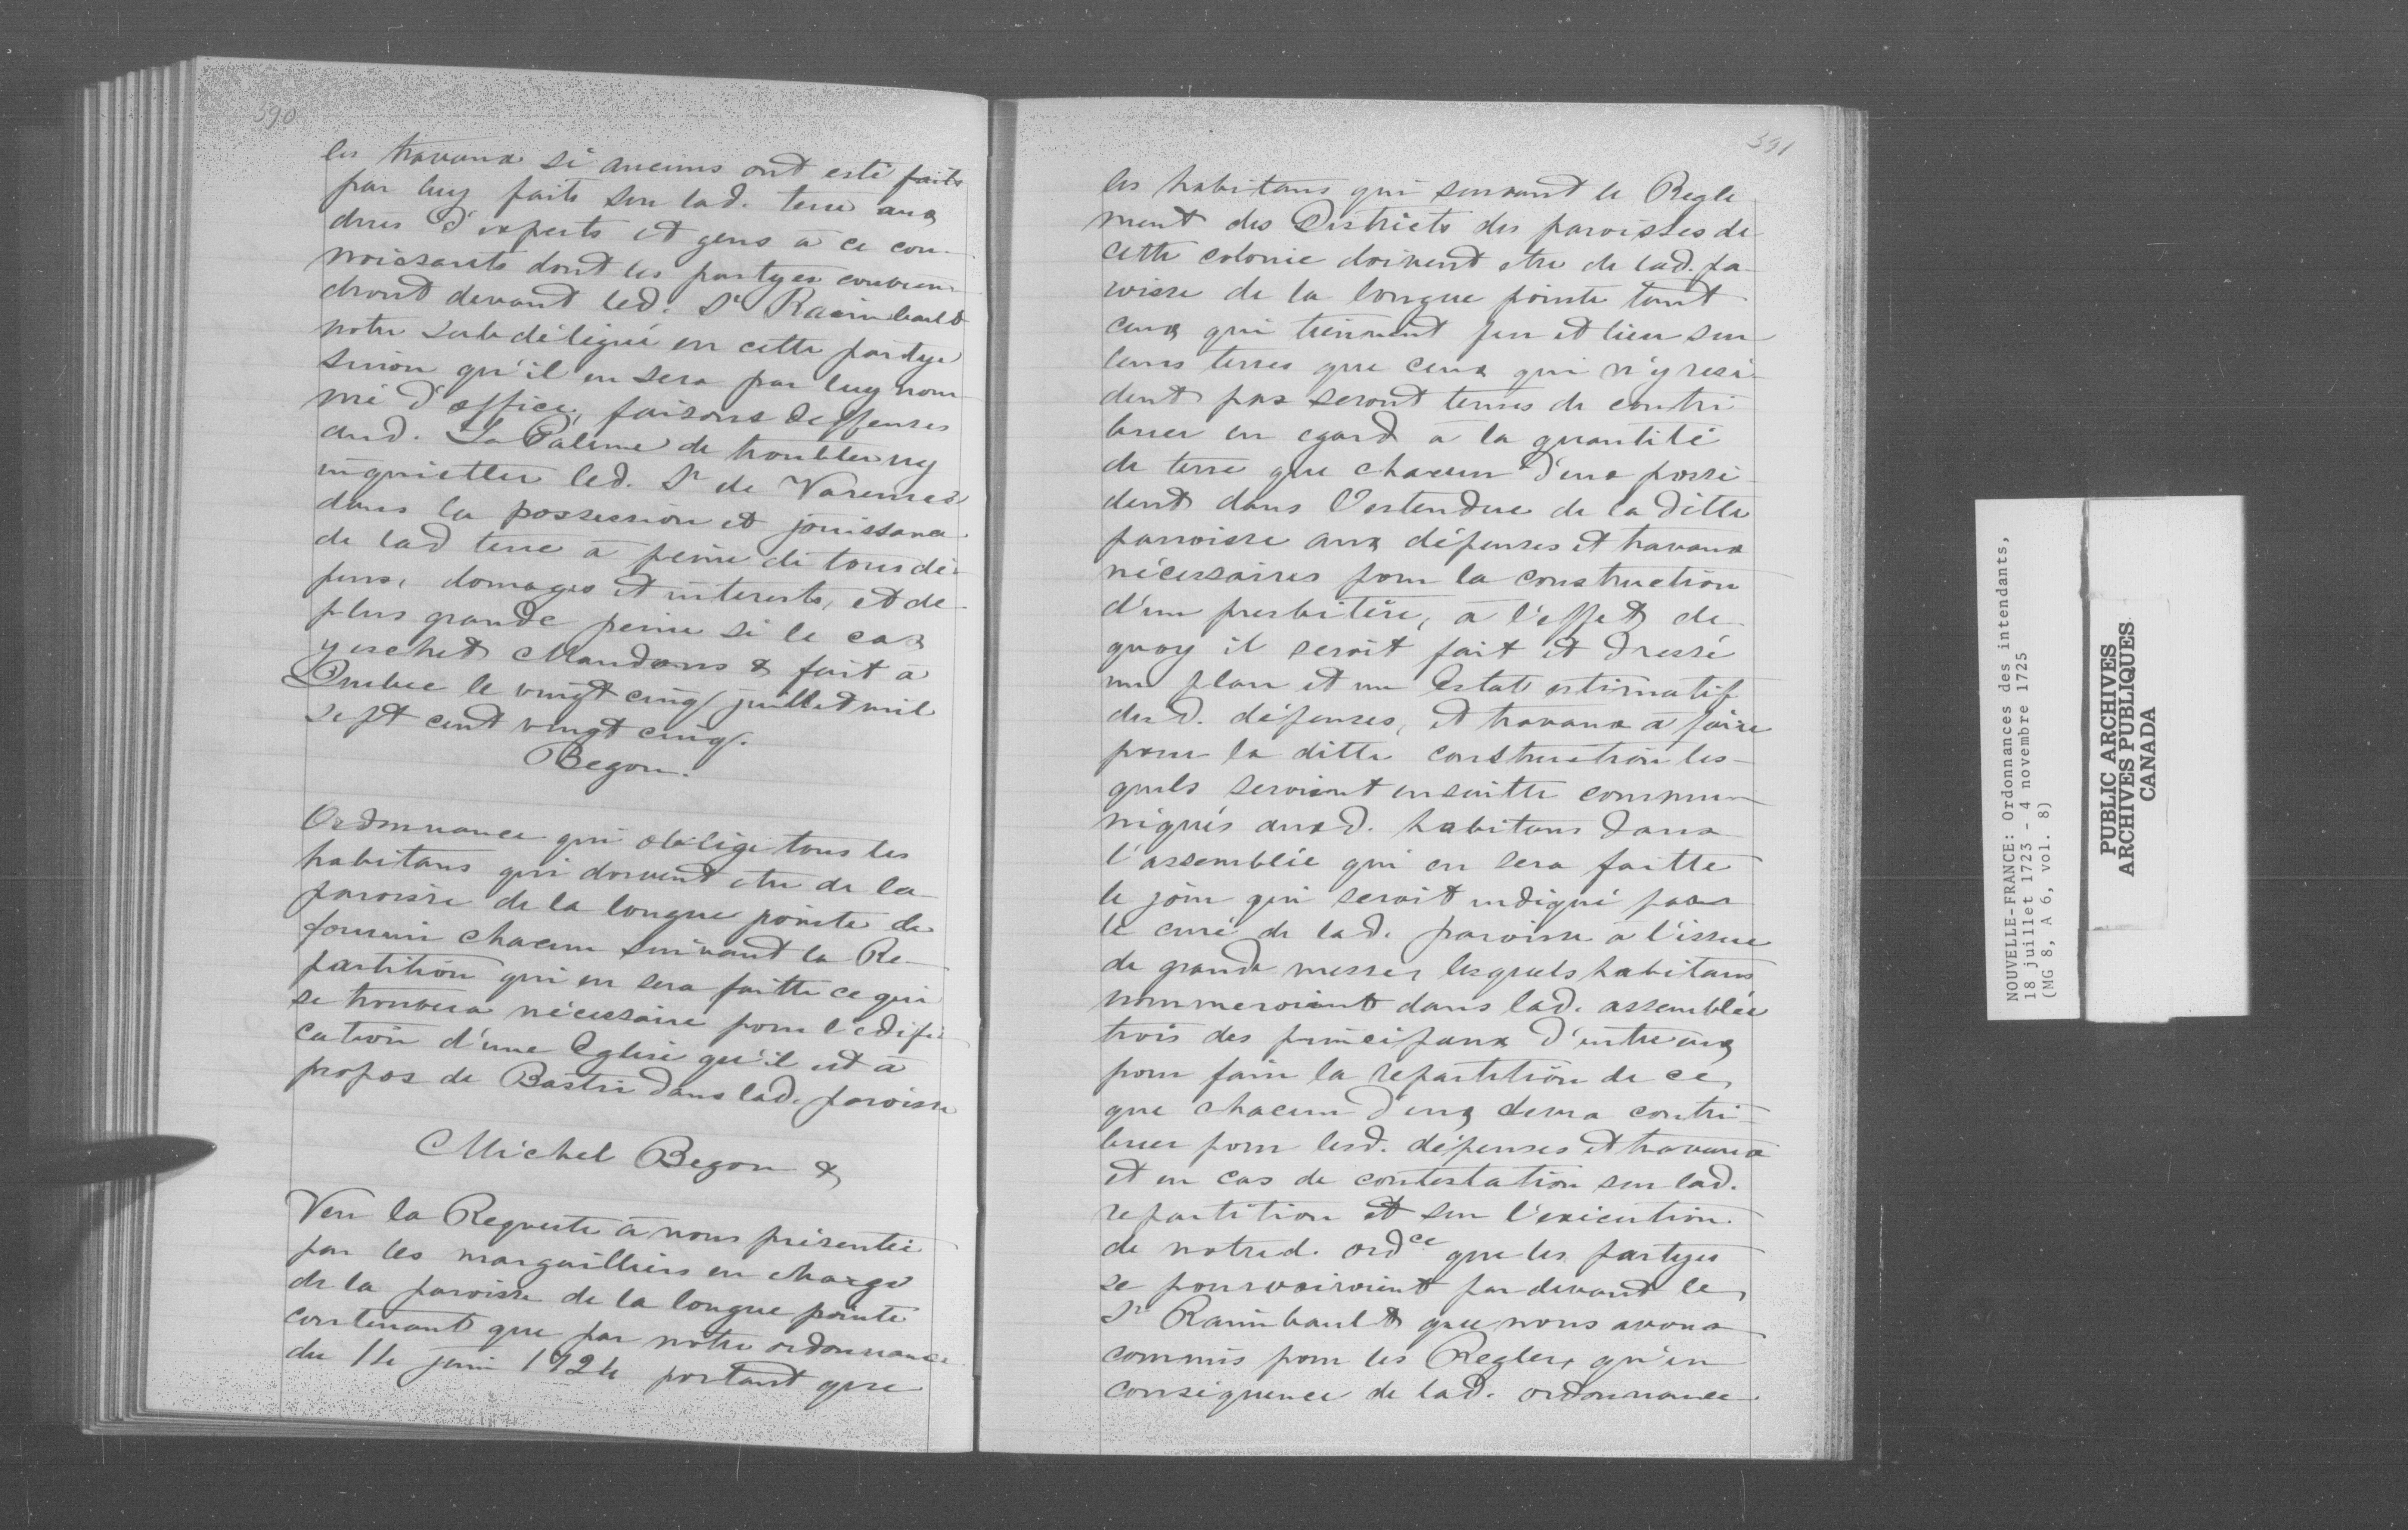 390
les travaux si aucuns ont esté faits
par luy faits sur lad. terre aux
dires d'experts et gens à ce con-
noissants dont les partyes convien-
dront devant led. Sr Raimbault
notre subdélégué en cette partye
sinon qu'il en sera par luy nom-
mé d'office, faisons deffenses
aud. La Palime de troubler ny
inquietter led. Sr de Varennes
dans la possession et jouissance
de lad terre à peine de tous dé-
pens, domages et interests, et de
plus grande peine si le cas
y eschet Mandons & fait à
Quebec le vingt cinq juillet mil
sept cent vingt cinq.
Begon.
Ordonnance qui oblige tous les
habitans qui doivent etre de la
paroisse de la longue pointe de
fournir chacun suivant la Re-
partition qui en sera faitte ce qui
se trouvera nécessaire pour l'edifi-
cation d'une Eglise qu'il est à
propos de Bastir dans lad. paroisse
Michel Begon &
Veu la Requeste à nous présentée
par les marguilliers en charge
de la paroisse de la longue pointe
contenant que par notre ordonnance
du 14 juin 1724 portant que
391
les habitans qui suivant le Regle
ment des Districts des paroisses de
cette colonie doivent etre de lad. pa-
roisse de la longue pointe tant
ceux qui tiennent feu et lieu sur
leurs terres que ceux qui n'y resi-
dent pas seront tenus de contri
buer en egard à la quantité
de terre que chacun d'eux possé-
dent dans l'estendue de la ditte
parroisse aux dépenses et travaux
nécessaires pour la construction
d'un presbitère, à l'effet de
quoy il seroit fait et dressé
un plan et un Estat estimatif
desd. dépenses, et travaux à faire
pour la ditte construction les-
quels seroient ensuitte commu-
niqués auxd. habitans dans
l'assemblée qui en sera faitte
le jour qui seroit indiqué par
le curé de lad. paroisse a l'issue
de grande messe, lesquels habitans
nommeroient dans lad. assemblée
trois des principaux d'entre eux
pour faire la repartition de ce
que chacun d'eux devra contri-
buer pour lesd. dépenses et travaux
et en cas de contestation sur lad.
repartition et sur l'exécution
de notred. ordce que les partyes
se pourvoiroient par devant le
Sr Raimbault que nous avons
commis pour les Regler, qu'en
conséquence de lad. ordonnance
NOUVELLE-FRANCE: Ordonnances des intendants,
18 juillet 1723 - 4 novembre 1725
(MG 8, A 6, vol. 8)
PUBLIC ARCHIVES
ARCHIVES PUBLIQUES
CANADA